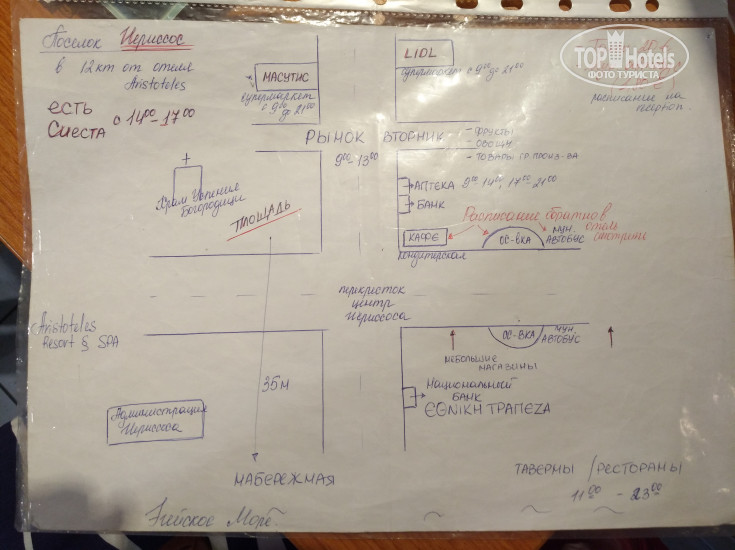 Поселок Иериссос
в 12 км от отеля
Aristoteles
есть
Сиеста с 14⁰⁰-17⁰⁰
МАСУТИС
супермаркет
с 9⁰⁰
до 21⁰⁰
LIDL
супермаркет с 9⁰⁰
до 21⁰⁰
TOP Hotels
ФОТО ТУРИСТА
расписание на
РЫНОК ВТОРНИК
9⁰⁰-13⁰⁰
- ФРУКТЫ
- ОВОЩИ
- ТОВАРЫ ГР. ПРОИЗ-ВА
Храм Успения
Богородицы
ПЛОЩАДЬ
АПТЕКА 9⁰⁰-14⁰⁰, 17⁰⁰-21⁰⁰
БАНК
Расписание
отель
смотрите
КАФЕ
ОС-ВКА
МУН.
АВТОБУС
Кондитерская
перекресток
центр
Иериссоса
Aristoteles
Resort & SPA
ОС-ВКА
МУН.
АВТОБУС
НЕБОЛЬШИЕ
МАГАЗИНЫ
35м
Национальный
БАНК
ΕΘΝΙΚΗ ΤΡΑΠΕΖΑ
Администрация
Иериссоса
НАБЕРЕЖНАЯ
ТАВЕРНЫ / РЕСТОРАНЫ
11⁰⁰ - 23⁰⁰
Эгейское Море